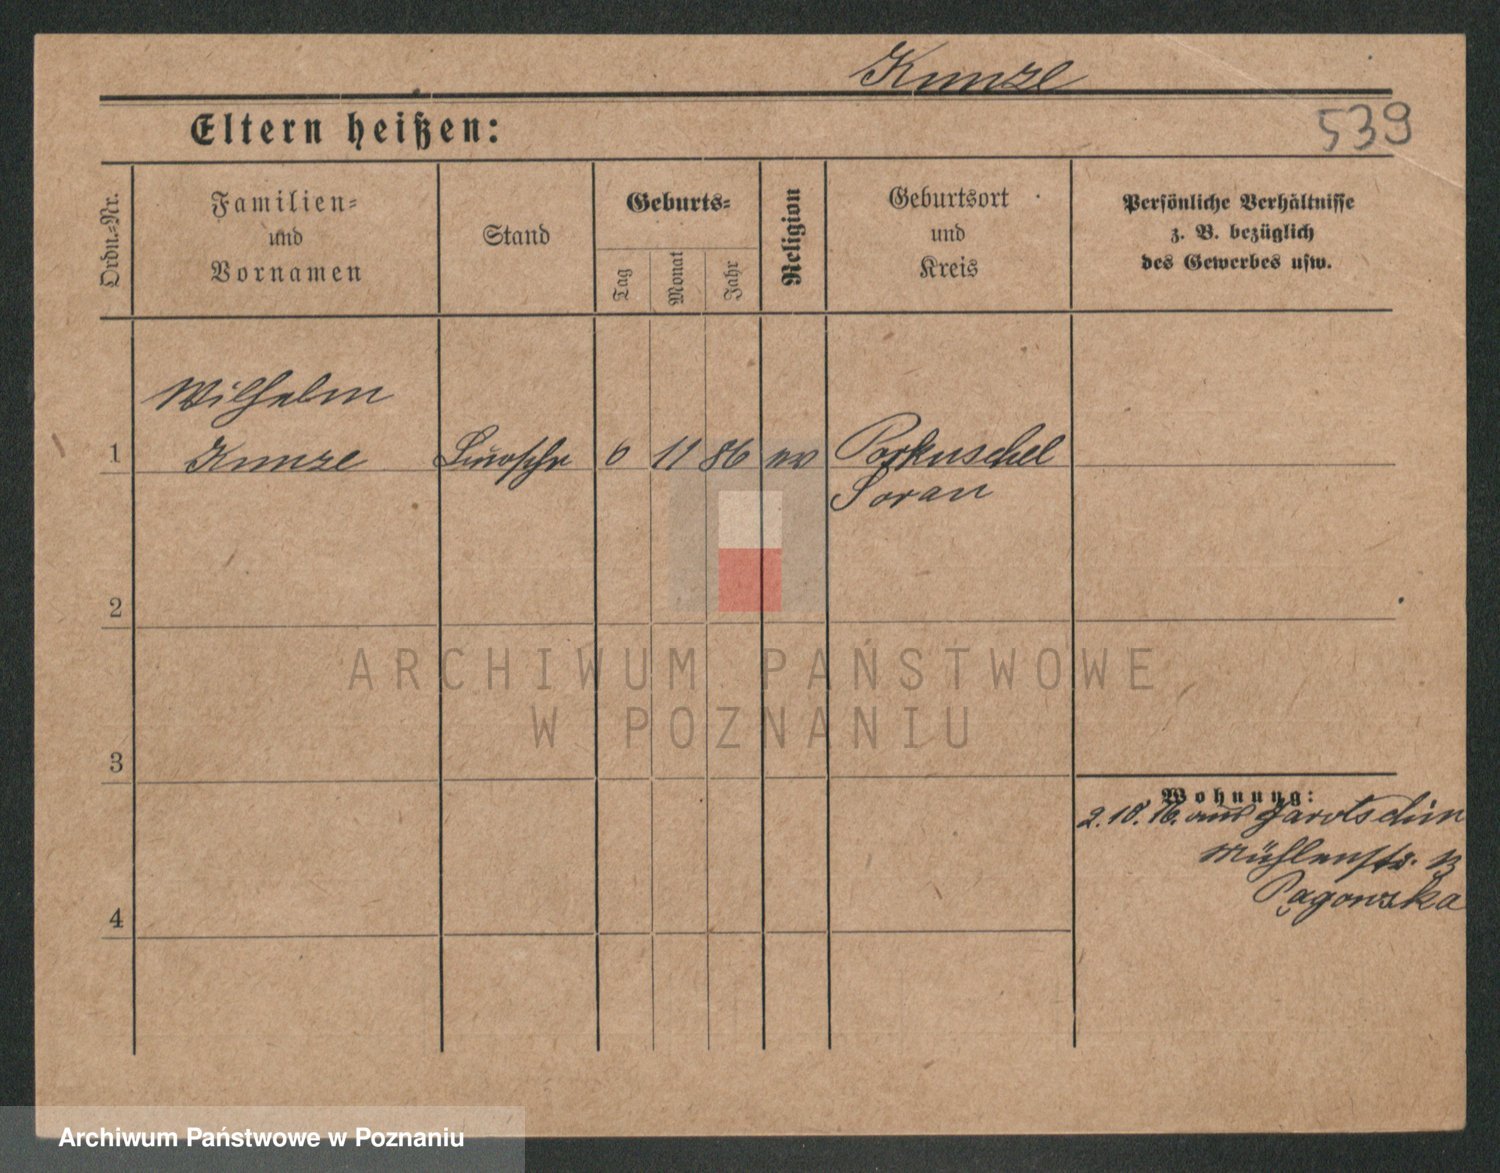 Kunze
539
Eltern heißen:
Ordn.-Nr.
Familien-
und
Vornamen
Stand
Geburts-
Tag
Monat
Jahr
Religion
Geburtsort
und
Kreis
Persönliche Verhältnisse
z. B. bezüglich
des Gewerbes usw.
Wilhelm
1 Kunze 6 11 86 ev Porkuschel
Soran
2
ARCHIWUM PAŃSTWOWE
W POZNANIU
3
Wohnung:
2.10.16. aus Jarotschin
Mühlenstr. 13
Pągowska
4
Archiwum Państwowe w Poznaniu